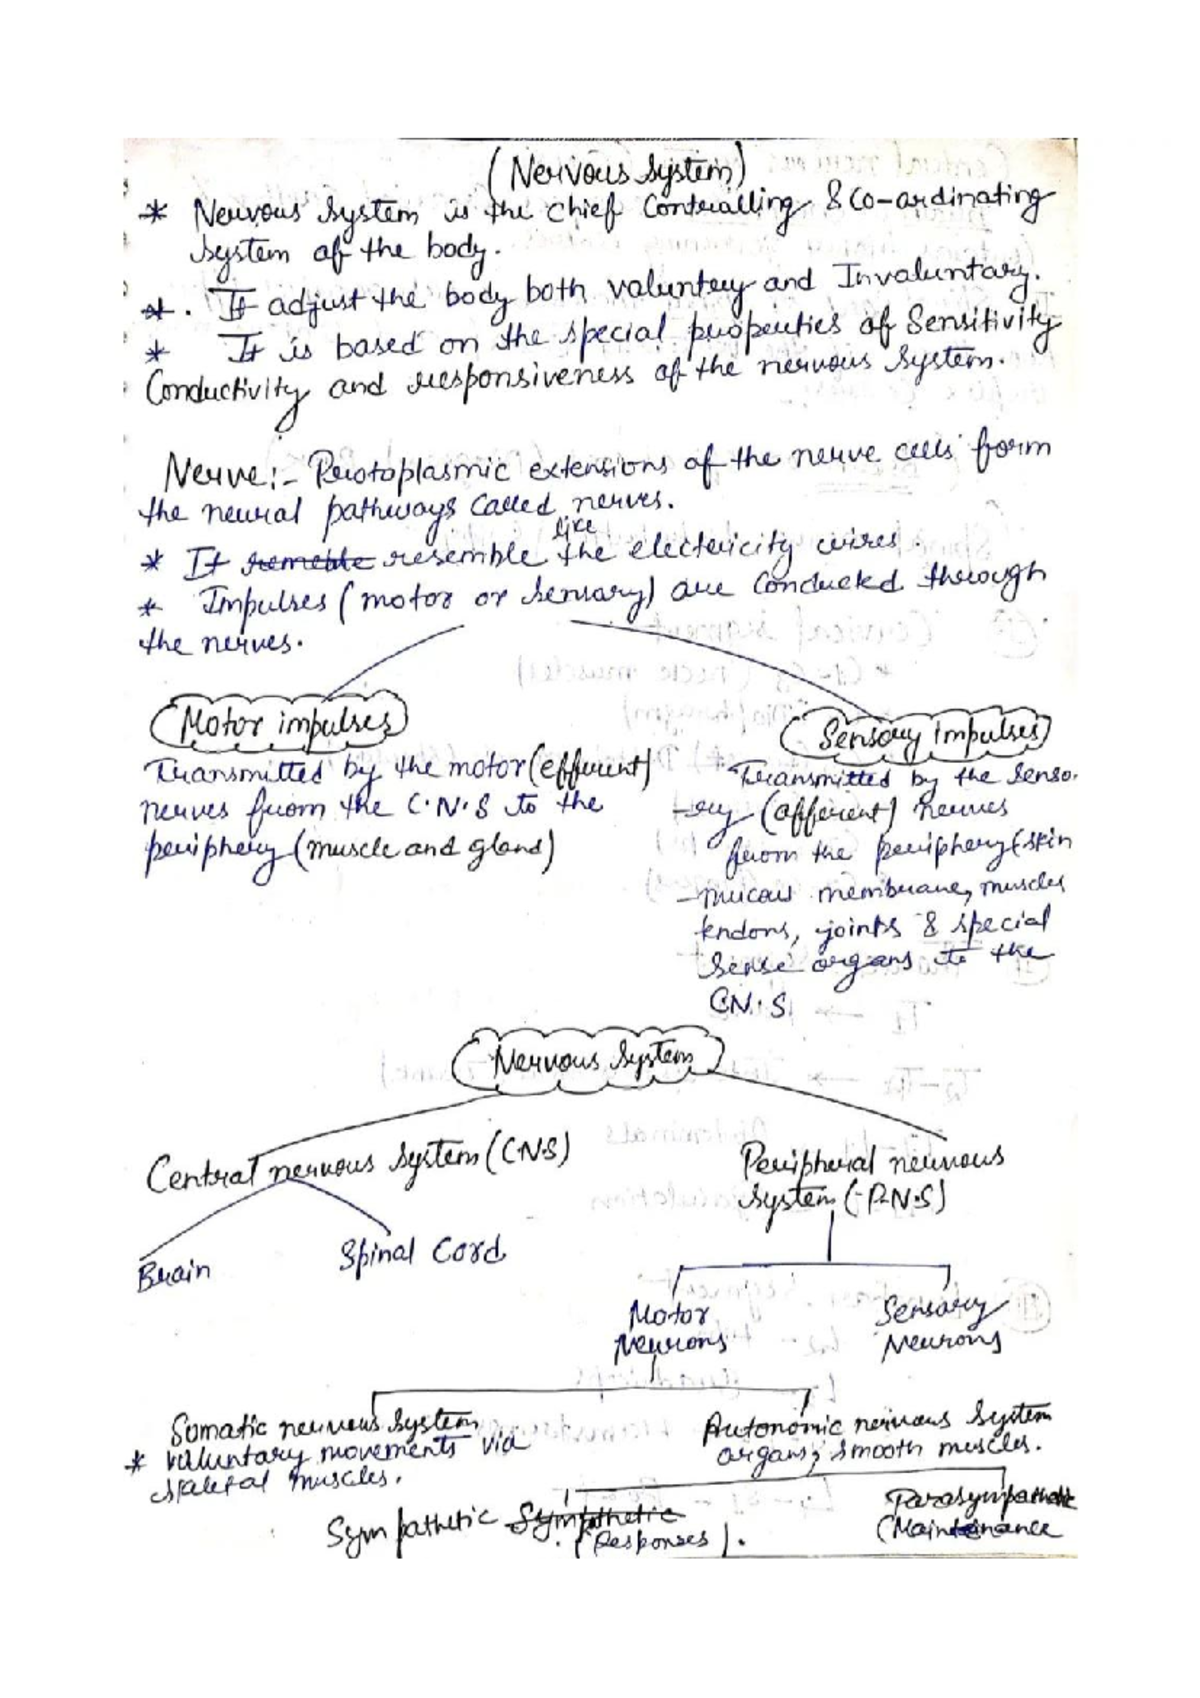 (Nervous System)
* Nervous System is the chief Controlling & Co-ardinating
System of the body.
* . It adjust the body both voluntary and Involuntary.
* It is based on the special properties of Sensitivity
Conductivity and responsiveness of the nervous System.
Nerve:- Protoplasmic extensions of the nerve cells form
the neural pathways Called nerves.
like
* It resemble the electricity wires.
* Impulses (motor or Sensary) are Conducted through
the nerves.
Motor impulses
Transmitted by the motor (efferent)
nerves from the C.N.S to the
periphery (muscle and gland)
Sensory impulses
Transmitted by the senso-
-ry (afferent) nerves
from the periphery (skin
-mucous membrane, muscles
tendons, joints & special
Sense organs to the
C.N.S
Nervous System
Central nervous System (C.N.S)
Peripheral nervous
System (P.N.S)
Brain
Spinal Cord
Motor
Neurons
Sensary
Neurons
Somatic nervous System
* voluntary movements via
skeletal muscles.
Autonomic nervous System
organs, smooth muscles.
Sympathetic Sympathetic
(Responses).
Parasympathetic
(Maintenance